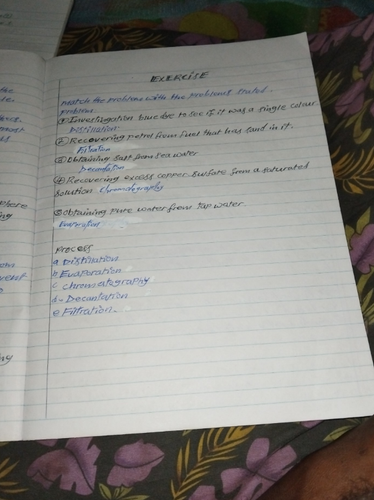 EXERCISE
match the problems with the problems stated.
problem
① Investigation blue dye to see if it was a single colour
Distillation
② Recovering petrol from fuel that has sand in it.
Filtration
③ Obtaining salt from sea water
Decantation
④ Recovering excess copper sulfate from a saturated
solution Chromatography
⑤ Obtaining pure water from tap water
Evaporation
Process
a Distillation
b Evaporation
c chromatography
d - Decantation
e Filtration.
the
where
ing